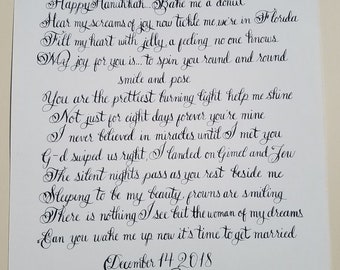 Happy Hanukkah... Bake me a donut
Hear my screams of joy now tickle me we're in Florida
Fill my heart with jelly, a feeling no one knows.
My joy for you is... to spin you round and round
smile and pose
You are the prettiest burning light help me shine
Not just for eight days forever you're mine
I never believed in miracles until I met you
G-d swiped us right, I landed on Gimel and Jew
The silent nights pass as you rest beside me
Sleeping to be my beauty, frowns are smiling
There is nothing I see but the woman of my dreams
Can you wake me up now it's time to get married
December 14 2018